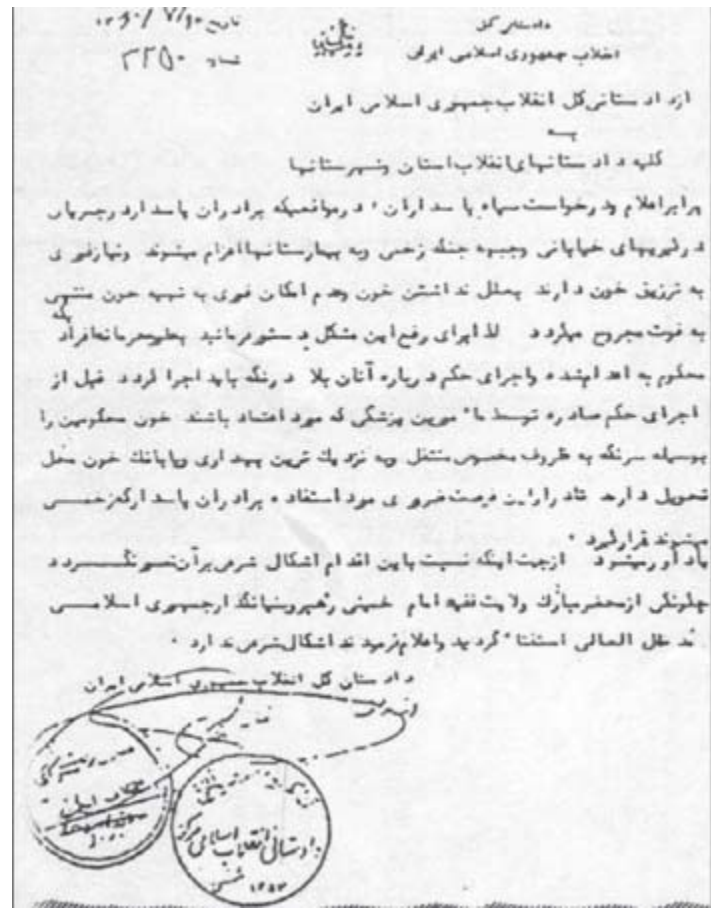 دادستانی کل
انقلاب جمهوری اسلامی ایران
تاریخ
شماره ۳۲۵۰
از دادستانی کل انقلاب جمهوری اسلامی ایران
به
کلیه دادستانیهای انقلاب استان و شهرستانها
برابر اعلام و درخواست سپاه پاسداران، در مواقعیکه برادران پاسدار در جریان
درگیریهای خیابانی و جبهه جنگ زخمی و به بیمارستانها اعزام میشوند و نیاز فوری
به تزریق خون دارند بعلل نداشتن خون و عدم امکان فوری به تهیه خون منتهی
به فوت مجروح میگردد لذا برای رفع این مشکل دستور فرمائید بطور محرمانه افرادیکه
محکوم به اعدام شده و اجرای حکم درباره آنان بلا درنگ باید اجرا گردد قبل از
اجرای حکم صادره توسط مأمورین پزشکی که مورد اعتماد باشند خون محکومین را
بوسیله سرنگ به ظروف مخصوص منتقل و به نزدیک ترین بهداری و یا بانک خون محل
تحویل دارند تا در این فرصت ضروری مورد استفاده برادران پاسدار که زخمی
میشوند قرار گیرد.
یادآور میشود از جهت اینکه نسبت باین اقدام اشکال شرعی بر آن تصور نگردد
چگونگی از محضر مبارک ولایت فقیه امام خمینی رهبر و بنیانگذار جمهوری اسلامی
مد ظله العالی استفتاء گردید و اعلام فرمودند اشکال شرعی ندارد.
دادستان کل انقلاب جمهوری اسلامی ایران
دادستانی انقلاب اسلامی مرکز